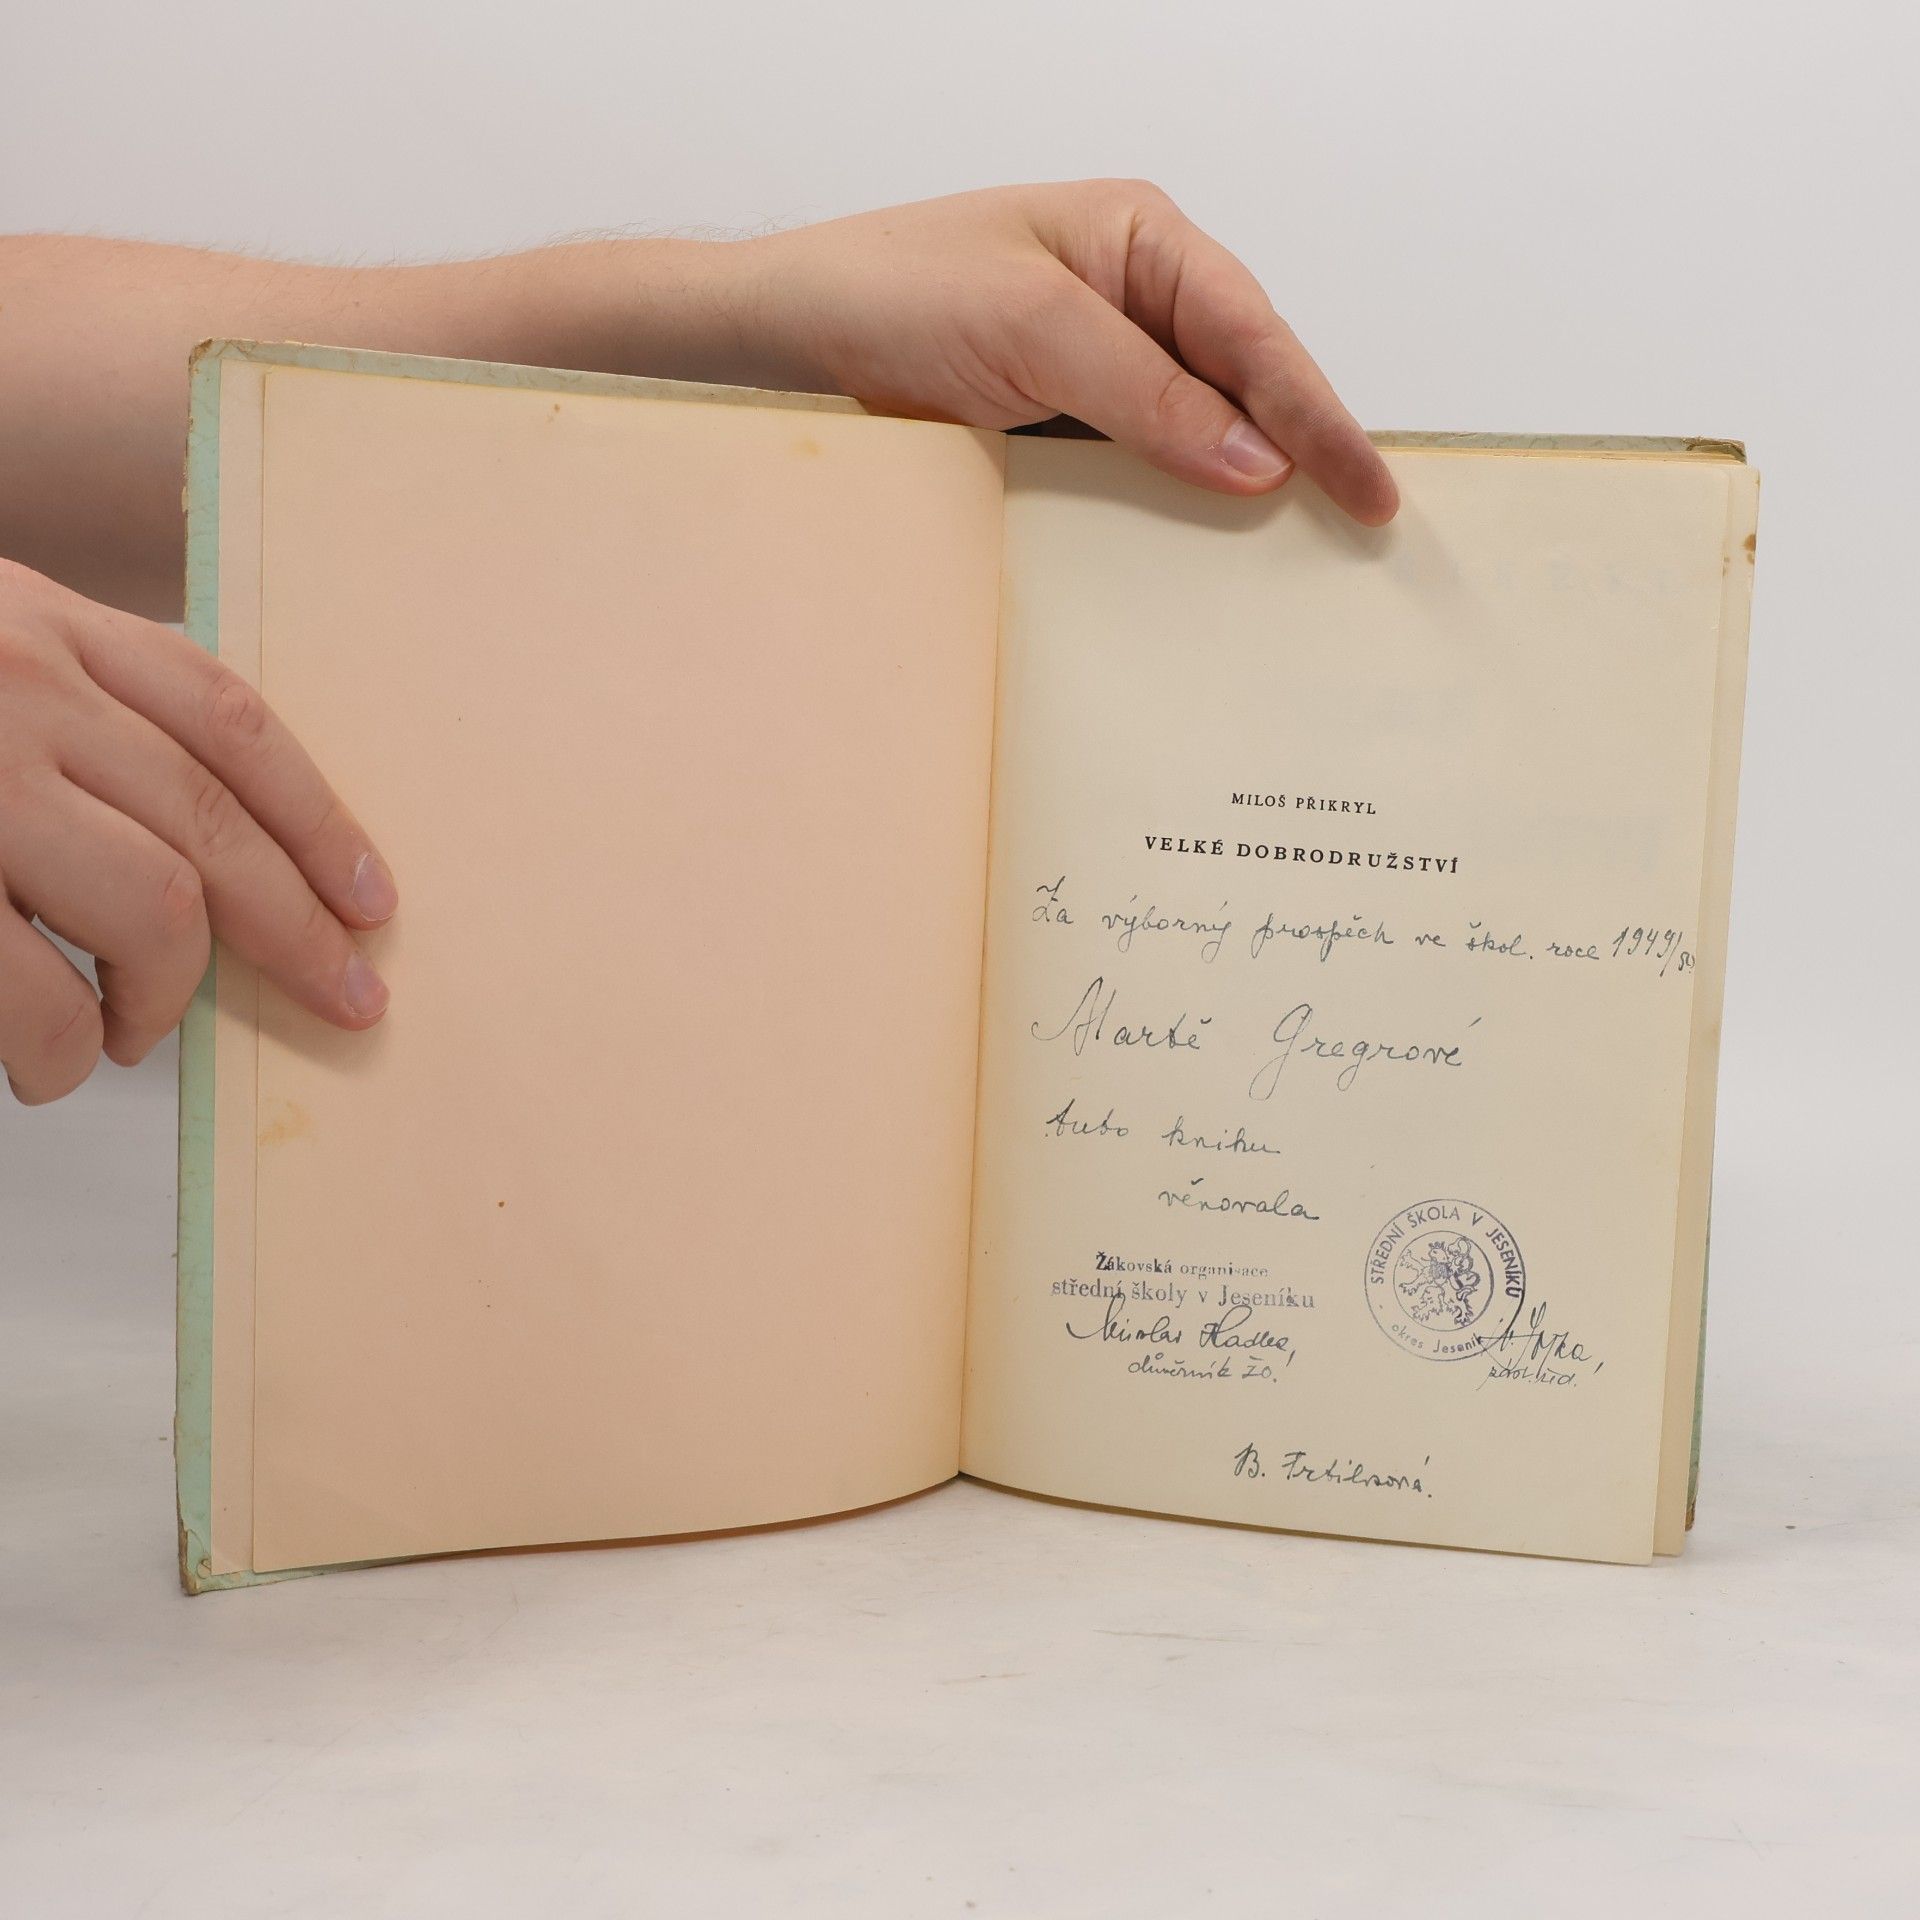 MILOŠ PŘIKRYL
VELKÉ DOBRODRUŽSTVÍ
Za výborný prospěch ve škol. roce 1949/50
Martě Gregrové
tuto knihu
věnovala
Žákovská organisace
střední školy v Jeseníku
důvěrník ŽO.
STŘEDNÍ ŠKOLA V JESENÍKU
okres Jeseník
B.